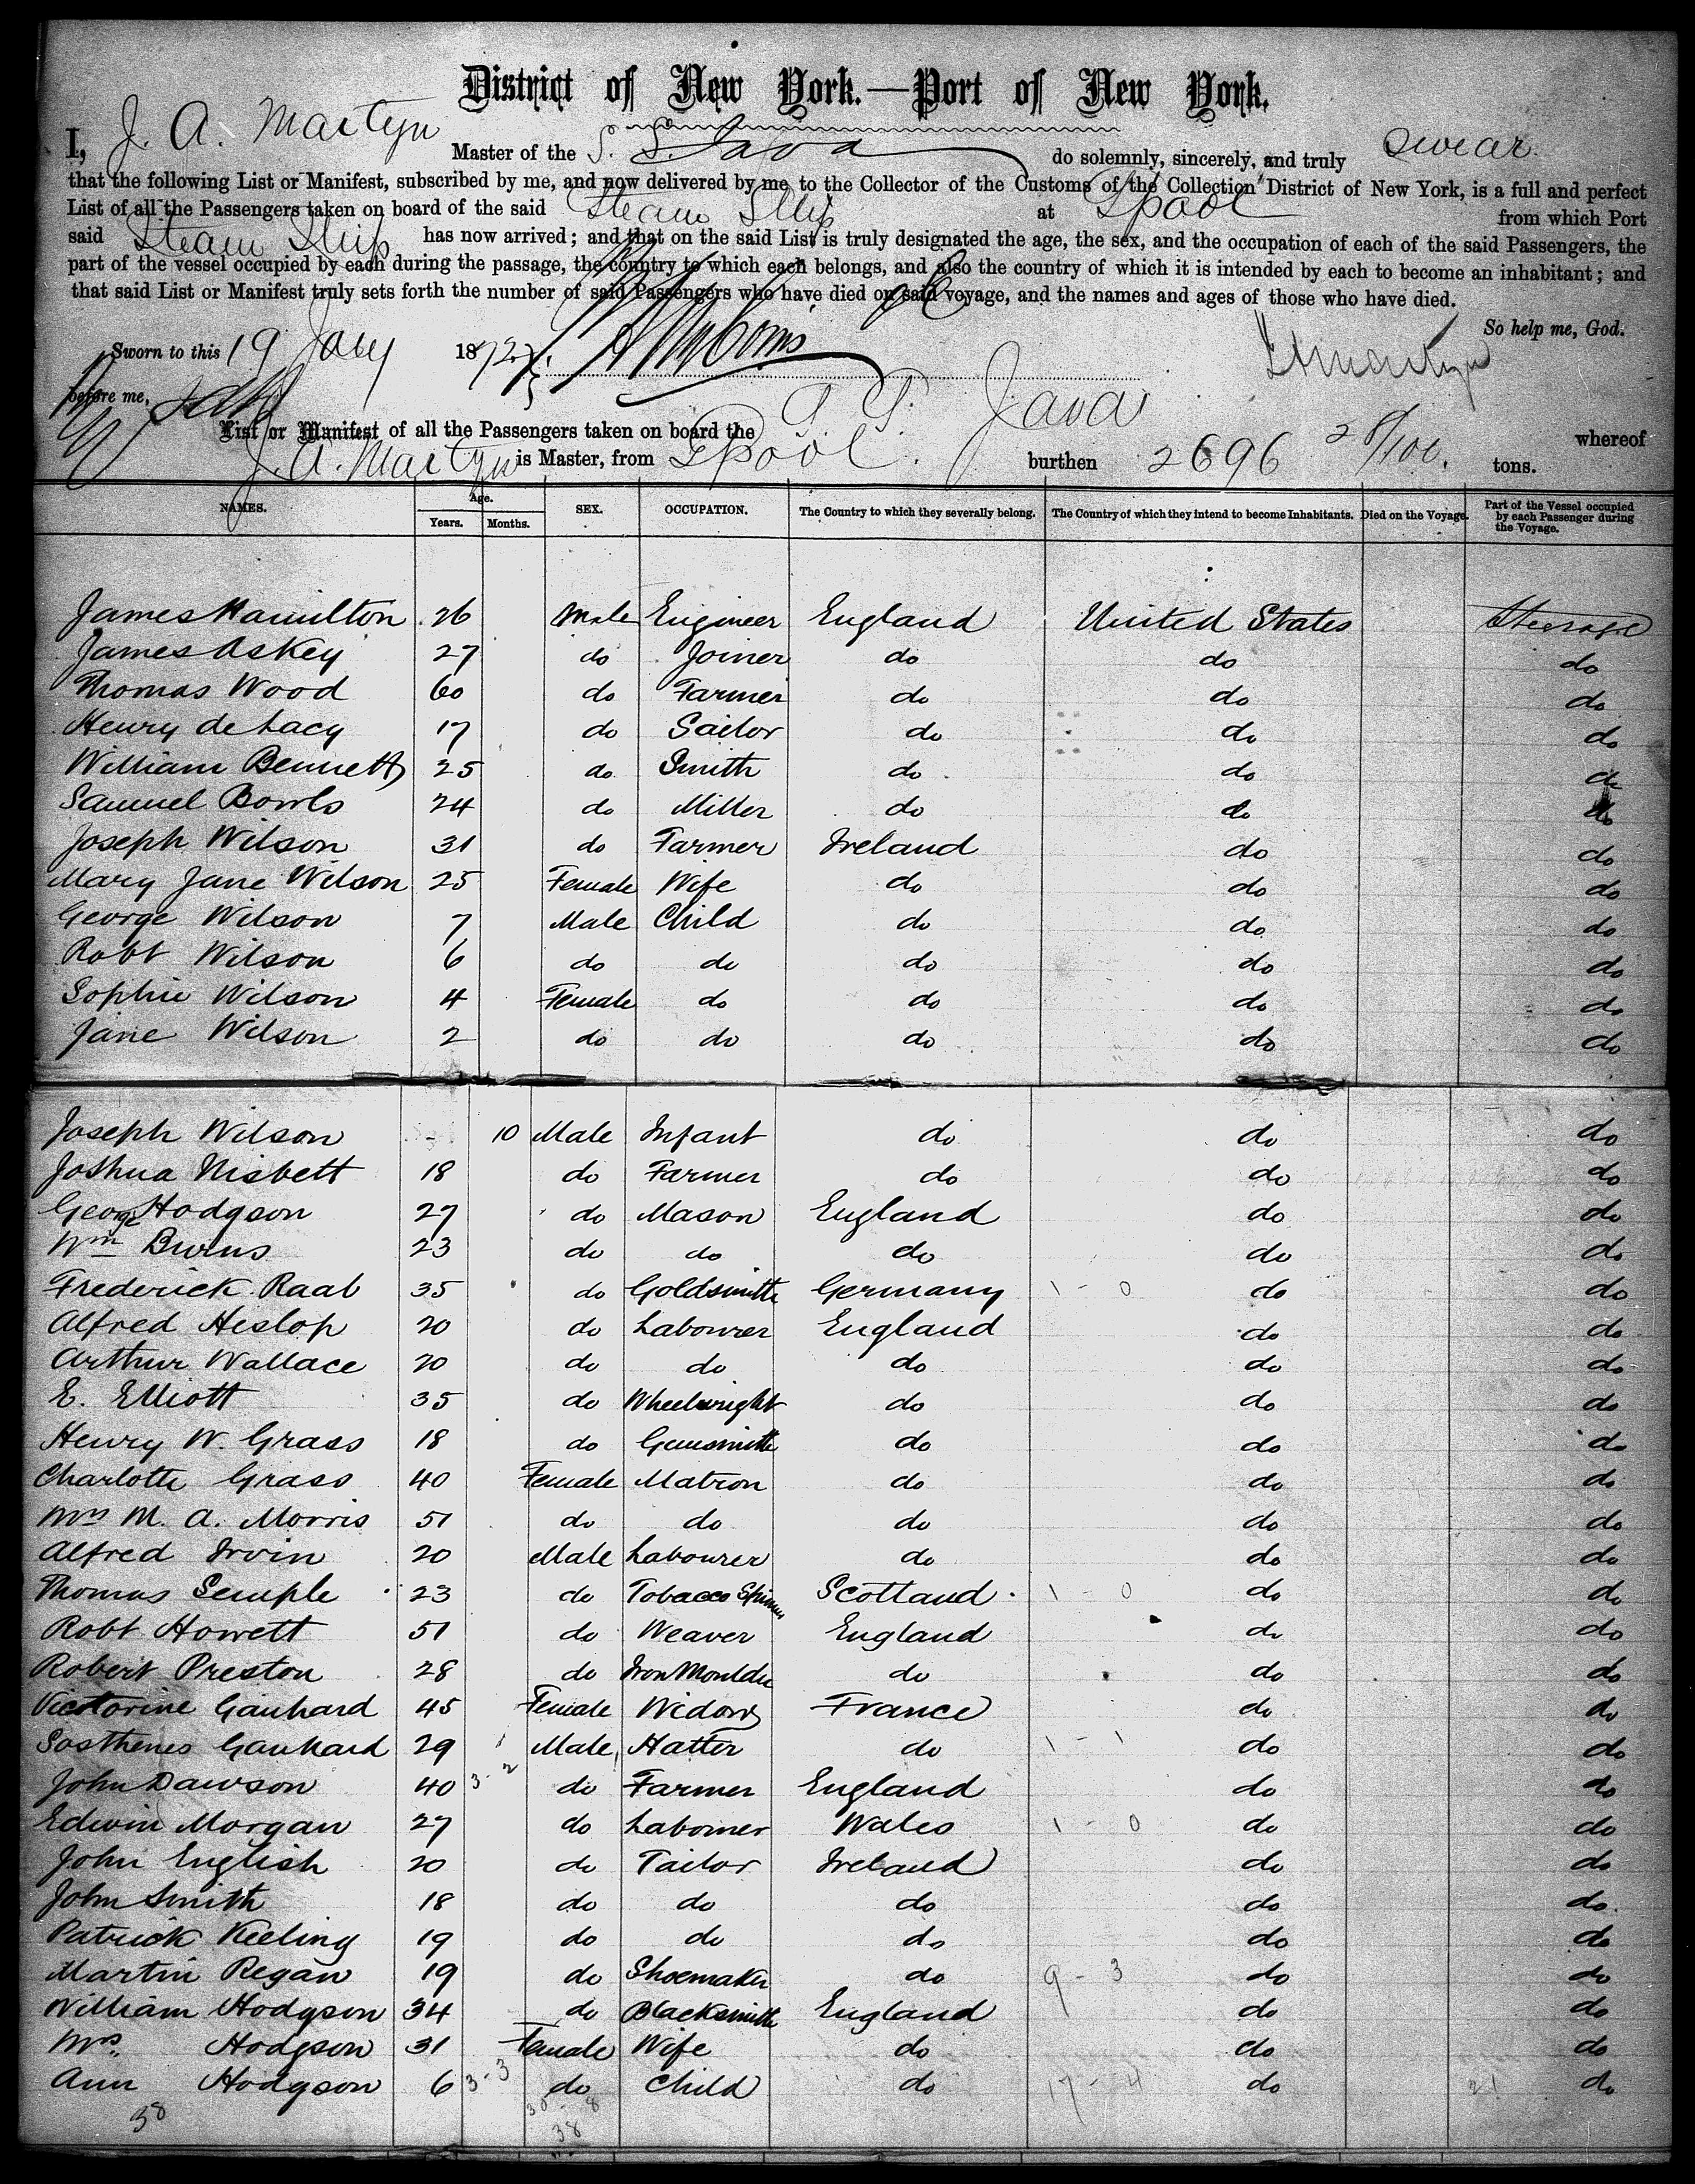 District of New York.—Port of New York.
I, J. A. Martyn Master of the S. S. Java do solemnly, sincerely, and truly swear
that the following List or Manifest, subscribed by me, and now delivered by me to the Collector of the Customs of the Collection District of New York, is a full and perfect
List of all the Passengers taken on board of the said Steam Ship at Lpool from which Port
said Steam Ship has now arrived; and that on the said List is truly designated the age, the sex, and the occupation of each of the said Passengers, the
part of the vessel occupied by each during the passage, the country to which each belongs, and also the country of which it is intended by each to become an inhabitant; and
that said List or Manifest truly sets forth the number of said Passengers who have died on said voyage, and the names and ages of those who have died.
So help me, God.
Sworn to this 19 Jany 1872
JAMartyn
before me,
List or Manifest of all the Passengers taken on board the S. S. Java whereof
J. A. Martyn is Master, from Lpool. burthen 2696 28/100. tons.
NAMES. Age. Years. Months. SEX. OCCUPATION. The Country to which they severally belong. The Country of which they intend to become Inhabitants. Died on the Voyage. Part of the Vessel occupied by each Passenger during the Voyage.
James Hamilton 26 Male Engineer England United States Steerage
James Askey 27 do Joiner do do do
Thomas Wood 60 do Farmer do do do
Henry de Lacy 17 do Sailor do do do
William Bennett 25 do Smith do do do
Samuel Bowls 24 do Miller do do do
Joseph Wilson 31 do Farmer Ireland do do
Mary Jane Wilson 25 Female Wife do do do
George Wilson 7 Male Child do do do
Robt Wilson 6 do do do do do
Sophie Wilson 4 Female do do do do
Jane Wilson 2 do do do do do
Joseph Wilson - 10 Male Infant do do do
Joshua Nisbett 18 do Farmer do do do
George Hodgson 27 do Mason England do do
Wm Burns 23 do do do do do
Frederick Raab 35 do Goldsmith Germany 1 - 0 do do
Alfred Heslop 20 do Labourer England do do
Arthur Wallace 20 do do do do do
E. Elliott 35 do Wheelwright do do do
Henry W. Grass 18 do Gunsmith do do do
Charlotte Grass 40 Female Matron do do do
Mrs M. A. Morris 51 do do do do do
Alfred Irvin 20 Male Labourer do do do
Thomas Semple 23 do Tobacco Spinner Scotland 1 - 0 do do
Robt Howett 51 do Weaver England do do
Robert Preston 28 do Iron Moulder do do do
Victorine Gauhard 45 Female Widow France do do
Sosthenes Gauhard 29 Male Hatter do 1 - 1 do do
John Dawson 40 3-2 do Farmer England do do
Edwin Morgan 27 do Labourer Wales 1 - 0 do do
John English 20 do Tailor Ireland do do
John Smith 18 do do do do do
Patrick Keeling 19 do do do do do
Martin Regan 19 do Shoemaker do 9 - 3 do do
William Hodgson 34 do Blacksmith England do do
Mrs. Hodgson 31 Female Wife do do do
Ann Hodgson 6 3-3 do Child do 17 - 4 do 21 do
38 30 8
38